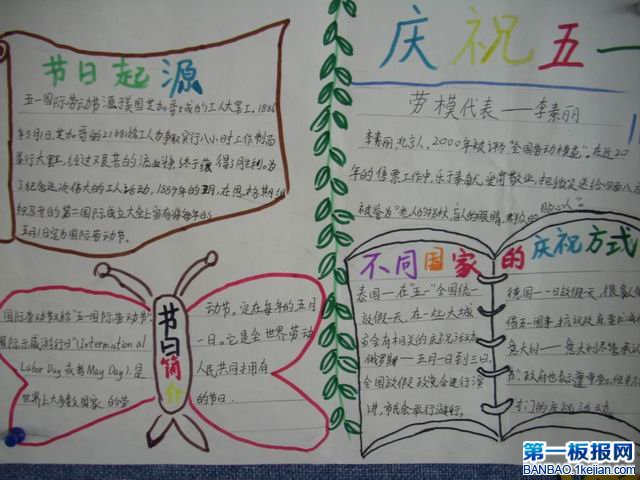 节日起源
五一国际劳动节源于美国芝加哥城的工人大罢工。1886
年5月1日,芝加哥的21.6万名工人为争取实行八小时工作制而
举行大罢工,经过艰苦的流血,终于获得了胜利。为
了纪念这次伟大的工人活动,1889年的7月,在恩格斯组
织召开的第二国际成立大会上宣布将每年的
五月1日定为国际劳动节。
节日简介
国际劳动节又称"五一国际劳动节"
国际示威游行日"(International
Labor Day或者May Day),是
世界上大多数国家的劳
动节。定在每年的五月
一日。它是全世界劳动
人民共同拥有
的节日.
庆祝五一
劳模代表——李素丽
李素丽,北京人,2000年被评为"全国劳动模范"。在近20
年的售票工作中,乐于奉献,爱岗敬业,把微笑送给四面八方
被誉为"老人的拐杖,盲人的眼睛,群众的贴心人"。
不同国家的庆祝方式
泰国——在"五一"全国统一
放假一天,在一些大城
市会有相关的庆祝活动
俄罗斯——五月一日到三日,
全国放假,政党会进行演
讲,市民会举行游行。
德国——日放假一天,很多人会
意大利——意大利尽管承认
节,政府也表示尊重劳工,但并不
专门的庆祝活动.
第一板报网
BANBAO.1kejian.com